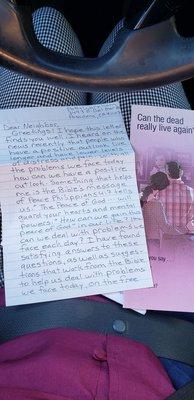 Dear Neighbor,
Greetings! I hope this letter
finds you well. I heard on the
news recently that people who
have a positive outlook live
longer and have lower levels
of distress. But with all
the problems we face today
how can we have a positive
outlook. Something that helps
me is the Bible's message
of Peace Philippians
us, "The Peace of God... will
guard your hearts and mental
powers." How can we gain the
peace of God in our life? How
can we deal with problems we
face each day? I have found
satisfying answers to these
questions, as well as sugges
tions that work from the Bible
to help us deal with problems
we face today, on the free
Can the dead
really live again?
you say